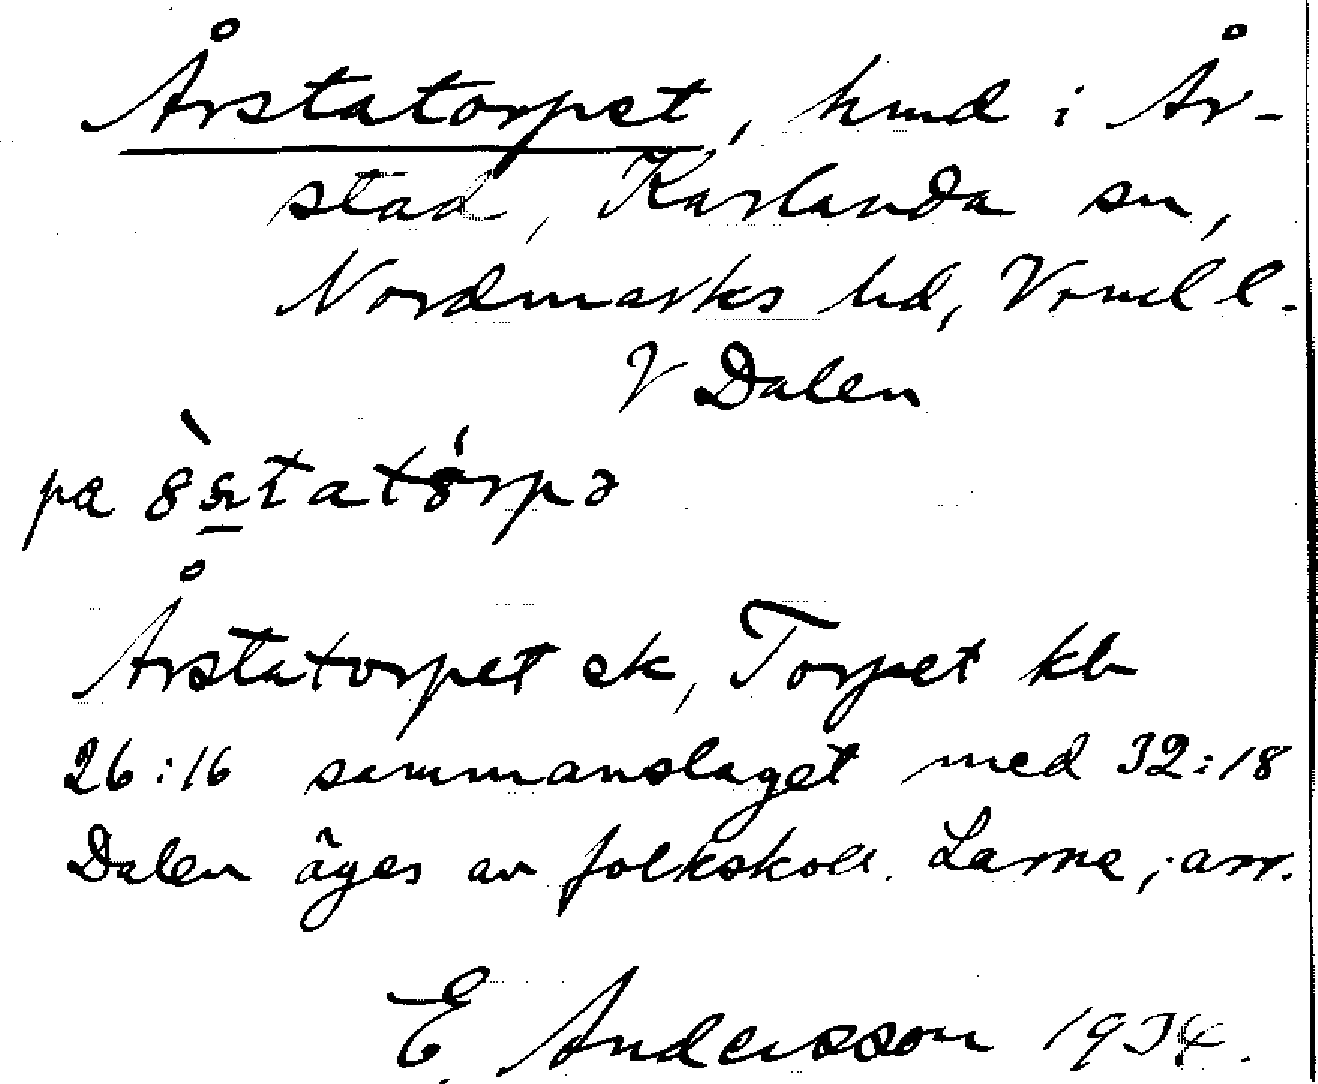 Årstatorpet, hmd i År-
stad, Karlanda sn,
Nordmarks hd, Vrml l.
V Dalen
pɑ
Årstatorpet ek, Torpet kb
26:16 sammanslaget med 32:18
Dalen äges av folkskoll. Larne, arr.
E. Andersson 1934.